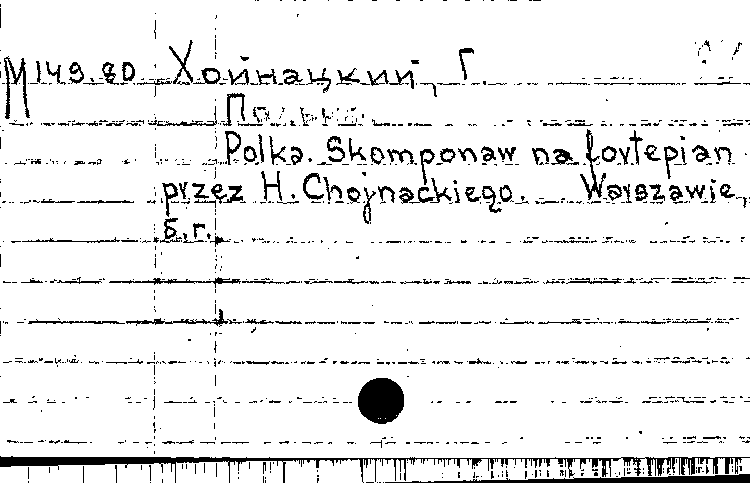 М 149.80 Хойнацкий, Г.
Polka. Skomponaw na fortepian
przez H. Chojnackiego. Warszawie,
б.г.